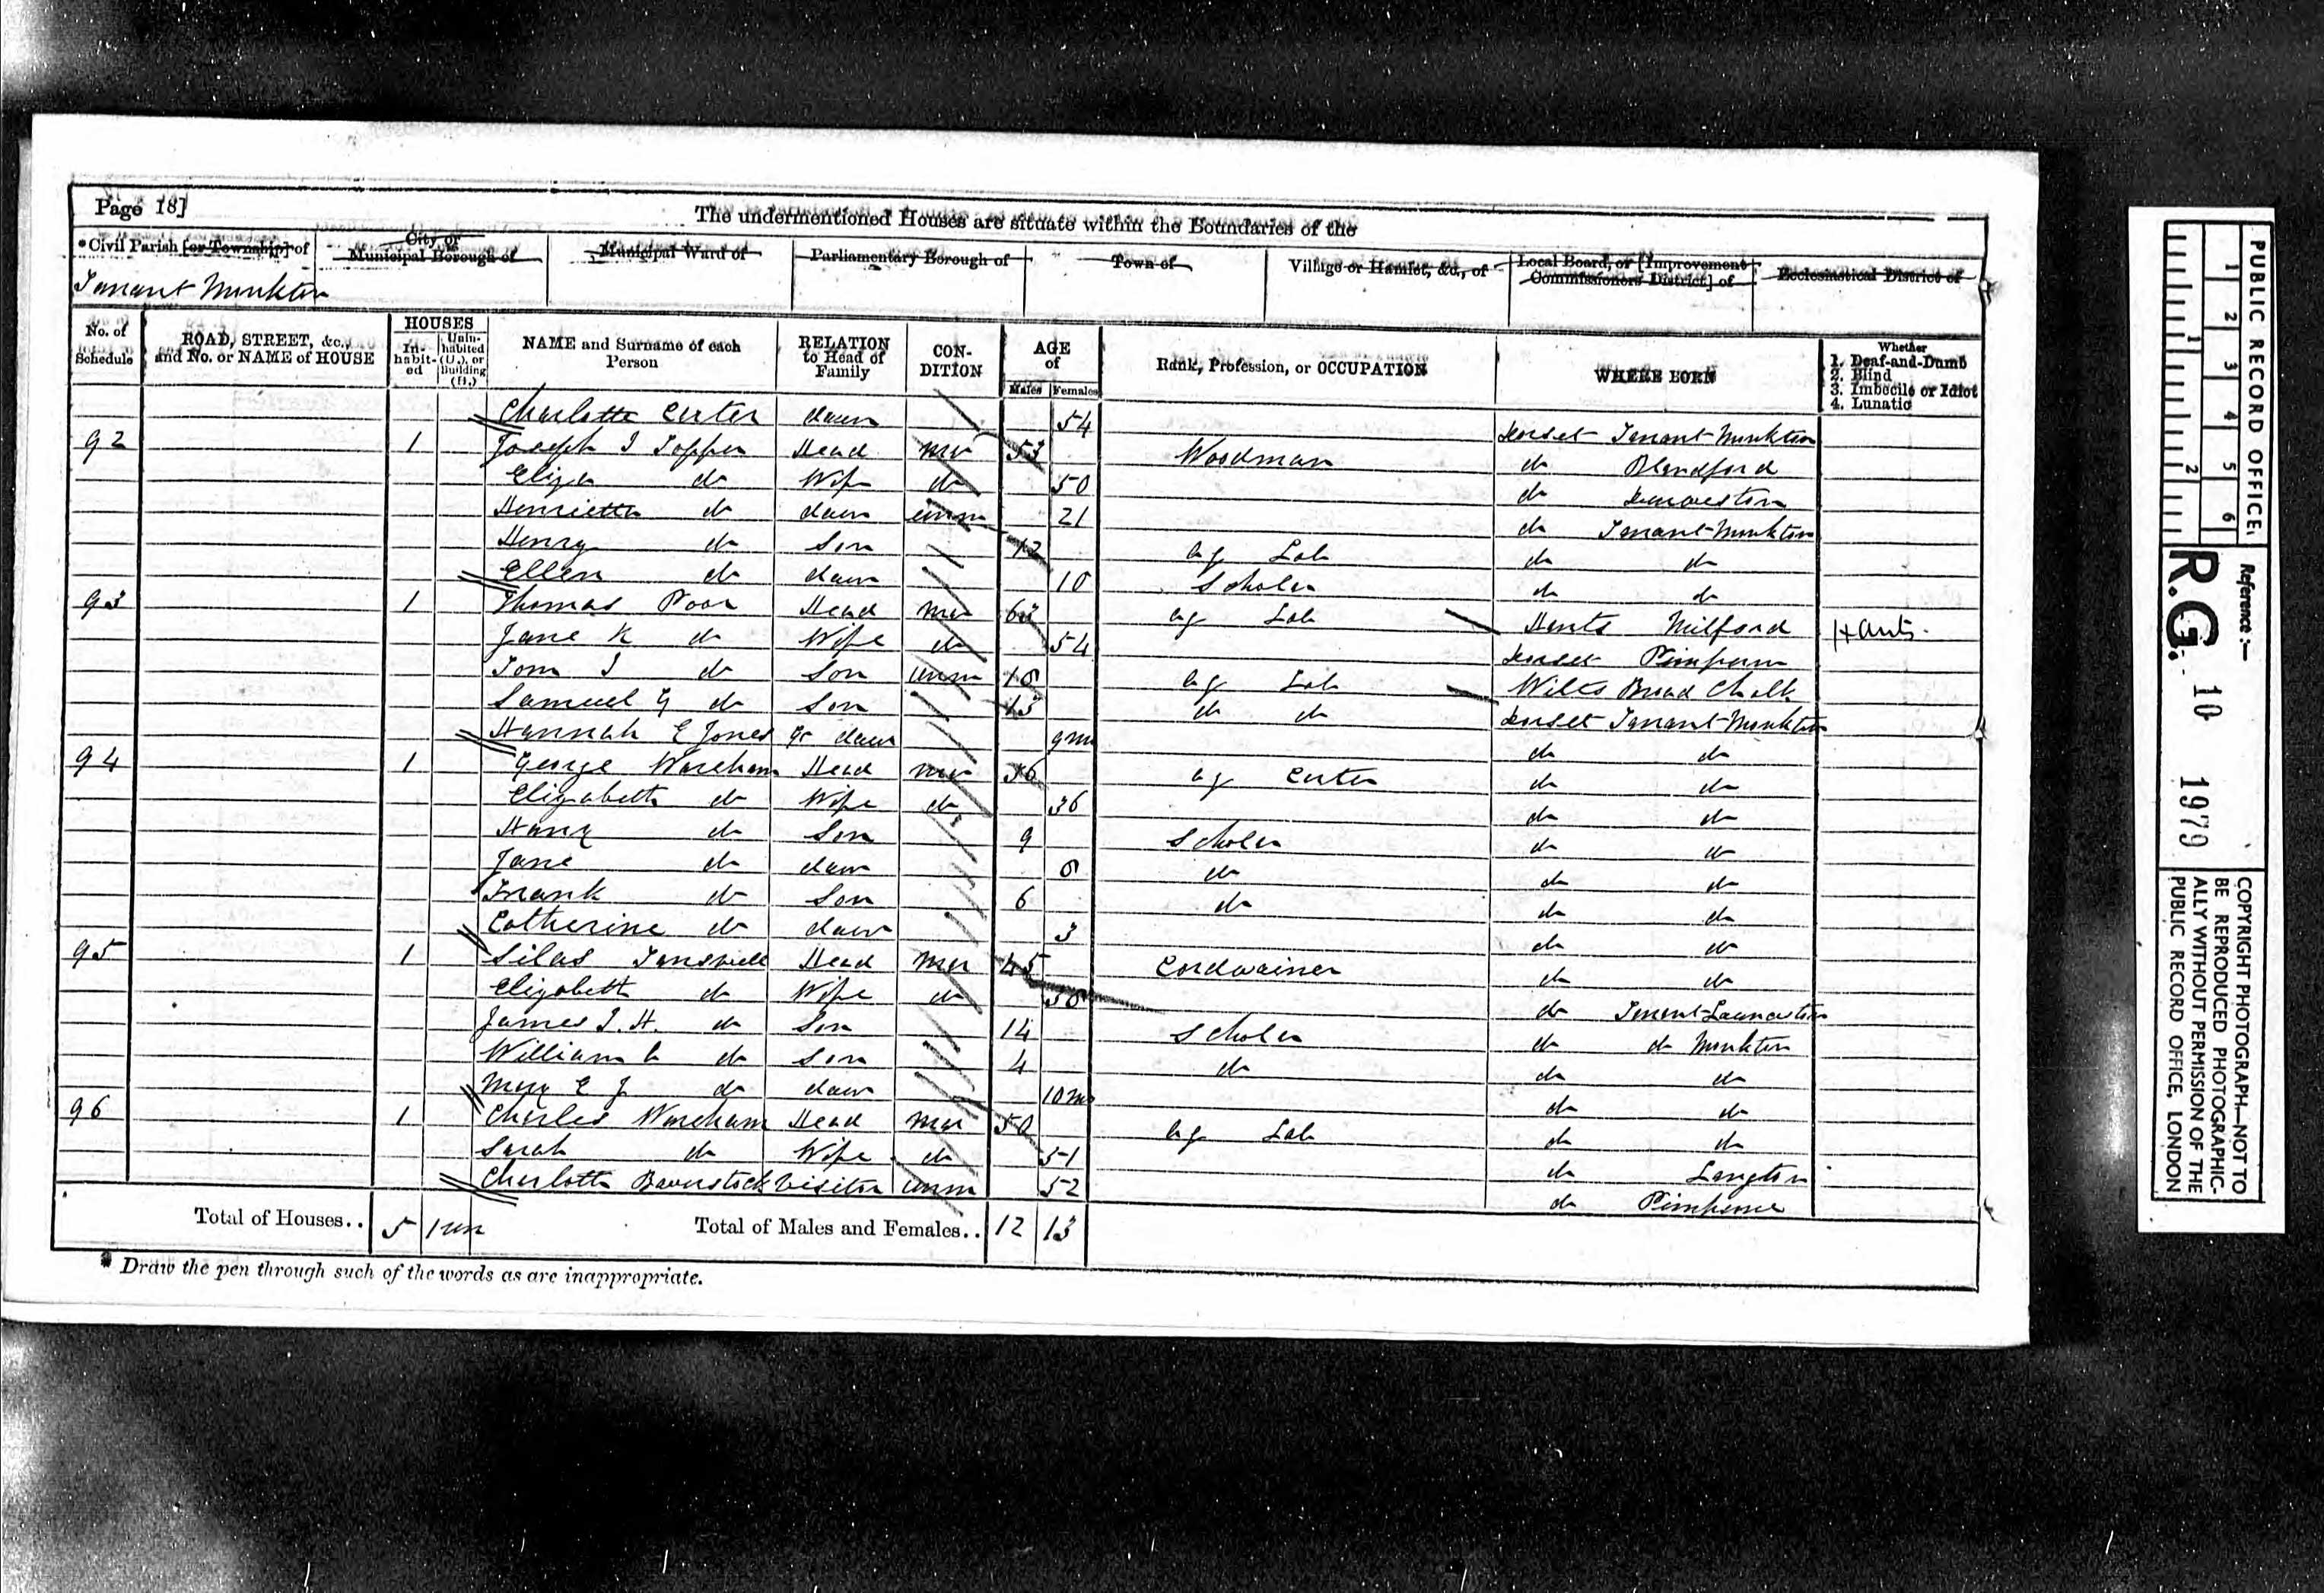 Page 18]
The undermentioned Houses are situate within the Boundaries of the
*Civil Parish [or Township] of City or Municipal Borough of Municipal Ward of Parliamentary Borough of Town of Village or Hamlet, &c., of Local Board, or [Improvement Commissioners District] of Ecclesiastical District of
Tarrant Monkton
No. of Schedule ROAD, STREET, &c., and No. or NAME of HOUSE HOUSES In-habit-ed Unin-habited (U.), or Building (B.) NAME and Surname of each Person RELATION to Head of Family CON-DITION AGE of Males Females Rank, Profession, or OCCUPATION WHERE BORN Whether 1. Deaf-and-Dumb 2. Blind 3. Imbecile or Idiot 4. Lunatic
Charlotte Carter daur 54 Dorset Tarrant Monkton
92 1 Joseph J Topper Head mar 53 Woodman do Blandford
Eliza do Wife do 50 do
Henrietta do daur unm 21 do Tarrant Monkton
Henry do Son 12 Ag Lab do do
Ellen do daur 10 Scholar do do
93 1 Thomas Poor Head mar Ag Lab Hants Milford Hants.
Jane K do Wife do 54 Dorset Pimpern
Tom J do Son unm 18 Ag Lab Wilts Broad Chalk
Samuel G do Son 13 do do Dorset Tarrant Monkton
Hannah E Jones Gr daur 9m do do
94 1 George Wareham Head mar 36 Ag Carter do do
Elizabeth do Wife do 36 do do
Harry do Son 9 Scholar do do
Jane do daur 8 do do do
Frank do Son 6 do do do
Catherine do daur 3 do do
95 1 Silas Head mar 45 Cordwainer do do
Elizabeth do Wife do do Tarrant Launceston
James J. H. do Son 14 Scholar do do Monkton
William C do Son 4 do do do
Mary E J do daur 10m do do
96 1 Charles Wareham Head mar 50 Ag Lab do do
Sarah do Wife do 51 do Langton
Charlotte Baverstock Visitor unm 52 do Pimperne
Total of Houses.. 5 1un Total of Males and Females.. 12 13
* Draw the pen through such of the words as are inappropriate.
PUBLIC RECORD OFFICE.
1 2 3 4 5 6
1 2
Reference :—
R.G. 10 1979
COPYRIGHT PHOTOGRAPH—NOT TO
BE REPRODUCED PHOTOGRAPHIC-
ALLY WITHOUT PERMISSION OF THE
PUBLIC RECORD OFFICE, LONDON